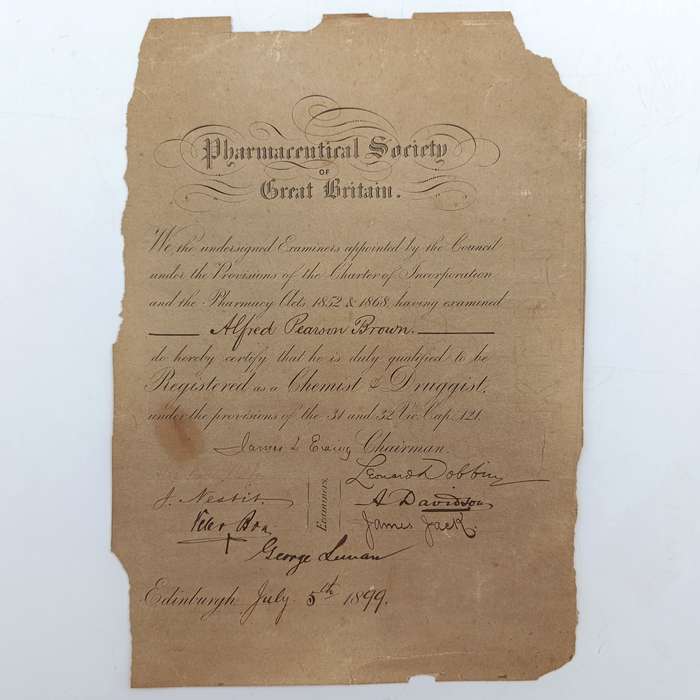 Pharmaceutical Society
OF
Great Britain.
We the undersigned Examiners appointed by the Council
under the Provisions of the Charter of Incorporation
and the Pharmacy Acts, 1852 & 1868, having examined
Alfred Pearson Brown.
do hereby certify that he is duly qualified to be
Registered as a Chemist & Druggist,
under the provisions of the 31 and 32 Vic. Cap. 121.
James Ewing Chairman.
Leonard Dobbin
J. Nesbit.
Examiners.
A Davidson
Peter Boa
James Jack.
George
Edinburgh, July 5th 1899.